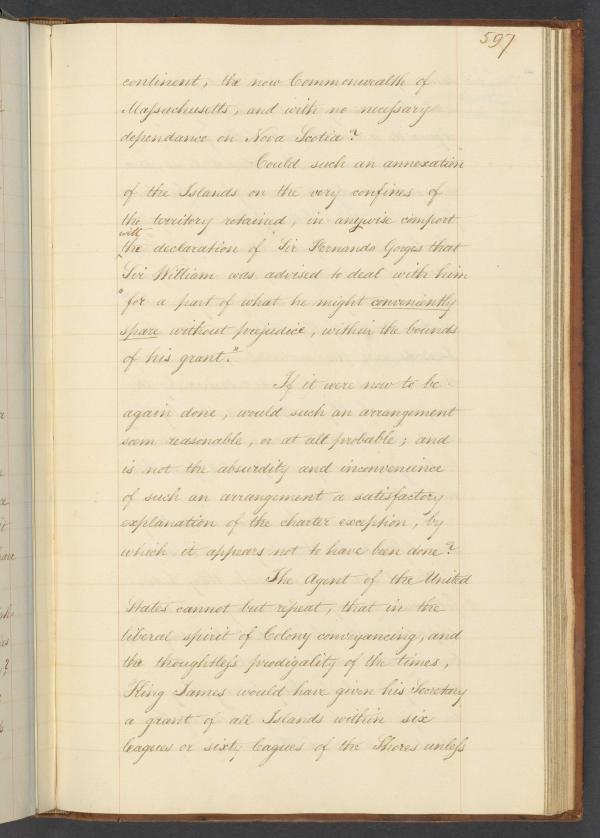 597
continent, the now Commonwealth of
Maſsachusetts, and with no neceſsary
dependance on Nova Scotia?
Could such an annexation
of the Islands on the very confines of
the territory retained, in anywise comport
with
the declaration of "Sir Fernando Gorges that
"Sir William was advised to deal with him
"for a part of what he might conveniently
spare without prejudice, within the bounds
of his grant."
If it were now to be
again done, would such an arrangement
seem reasonable, or at all probable; and
is not the absurdity and inconvenience
of such an arrangement a satisfactory
explanation of the charter exception, by
which it appears not to have been done?
The Agent of the United
States cannot but repeat, that in the
liberal spirit of Colony conveyancing, and
the thoughtleſs prodigality of the times,
King James would have given his Secretary
a grant of all Islands within six
leagues or sixty leagues of the Shores unleſs